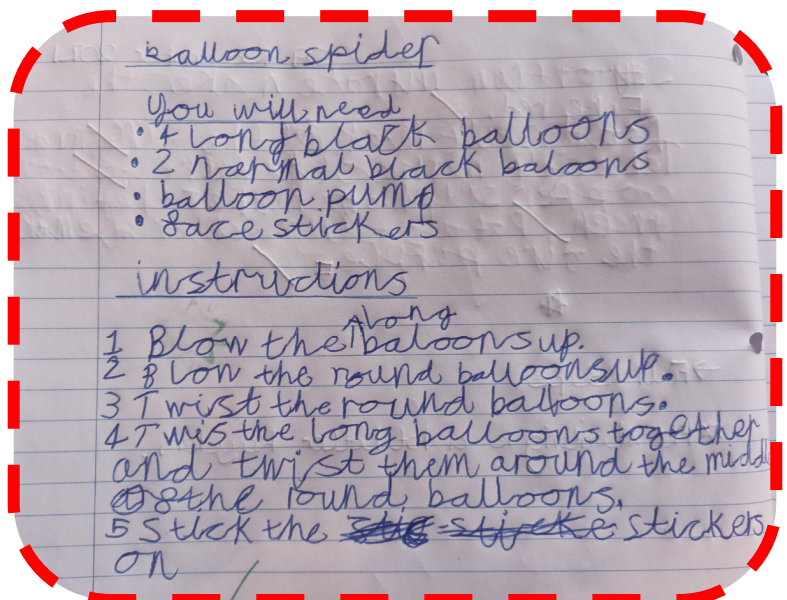 balloon spider
You will need
• 4 long black balloons
• 2 normal black baloons
• balloon pump
• face stickers
instructions
long
1 Blow the baloons up.
2 Blow the round balloons up.
3 Twist the round balloons.
4 Twis the long balloons together
and twist them around the middl
of the round balloons.
5 Stick the stickers
on